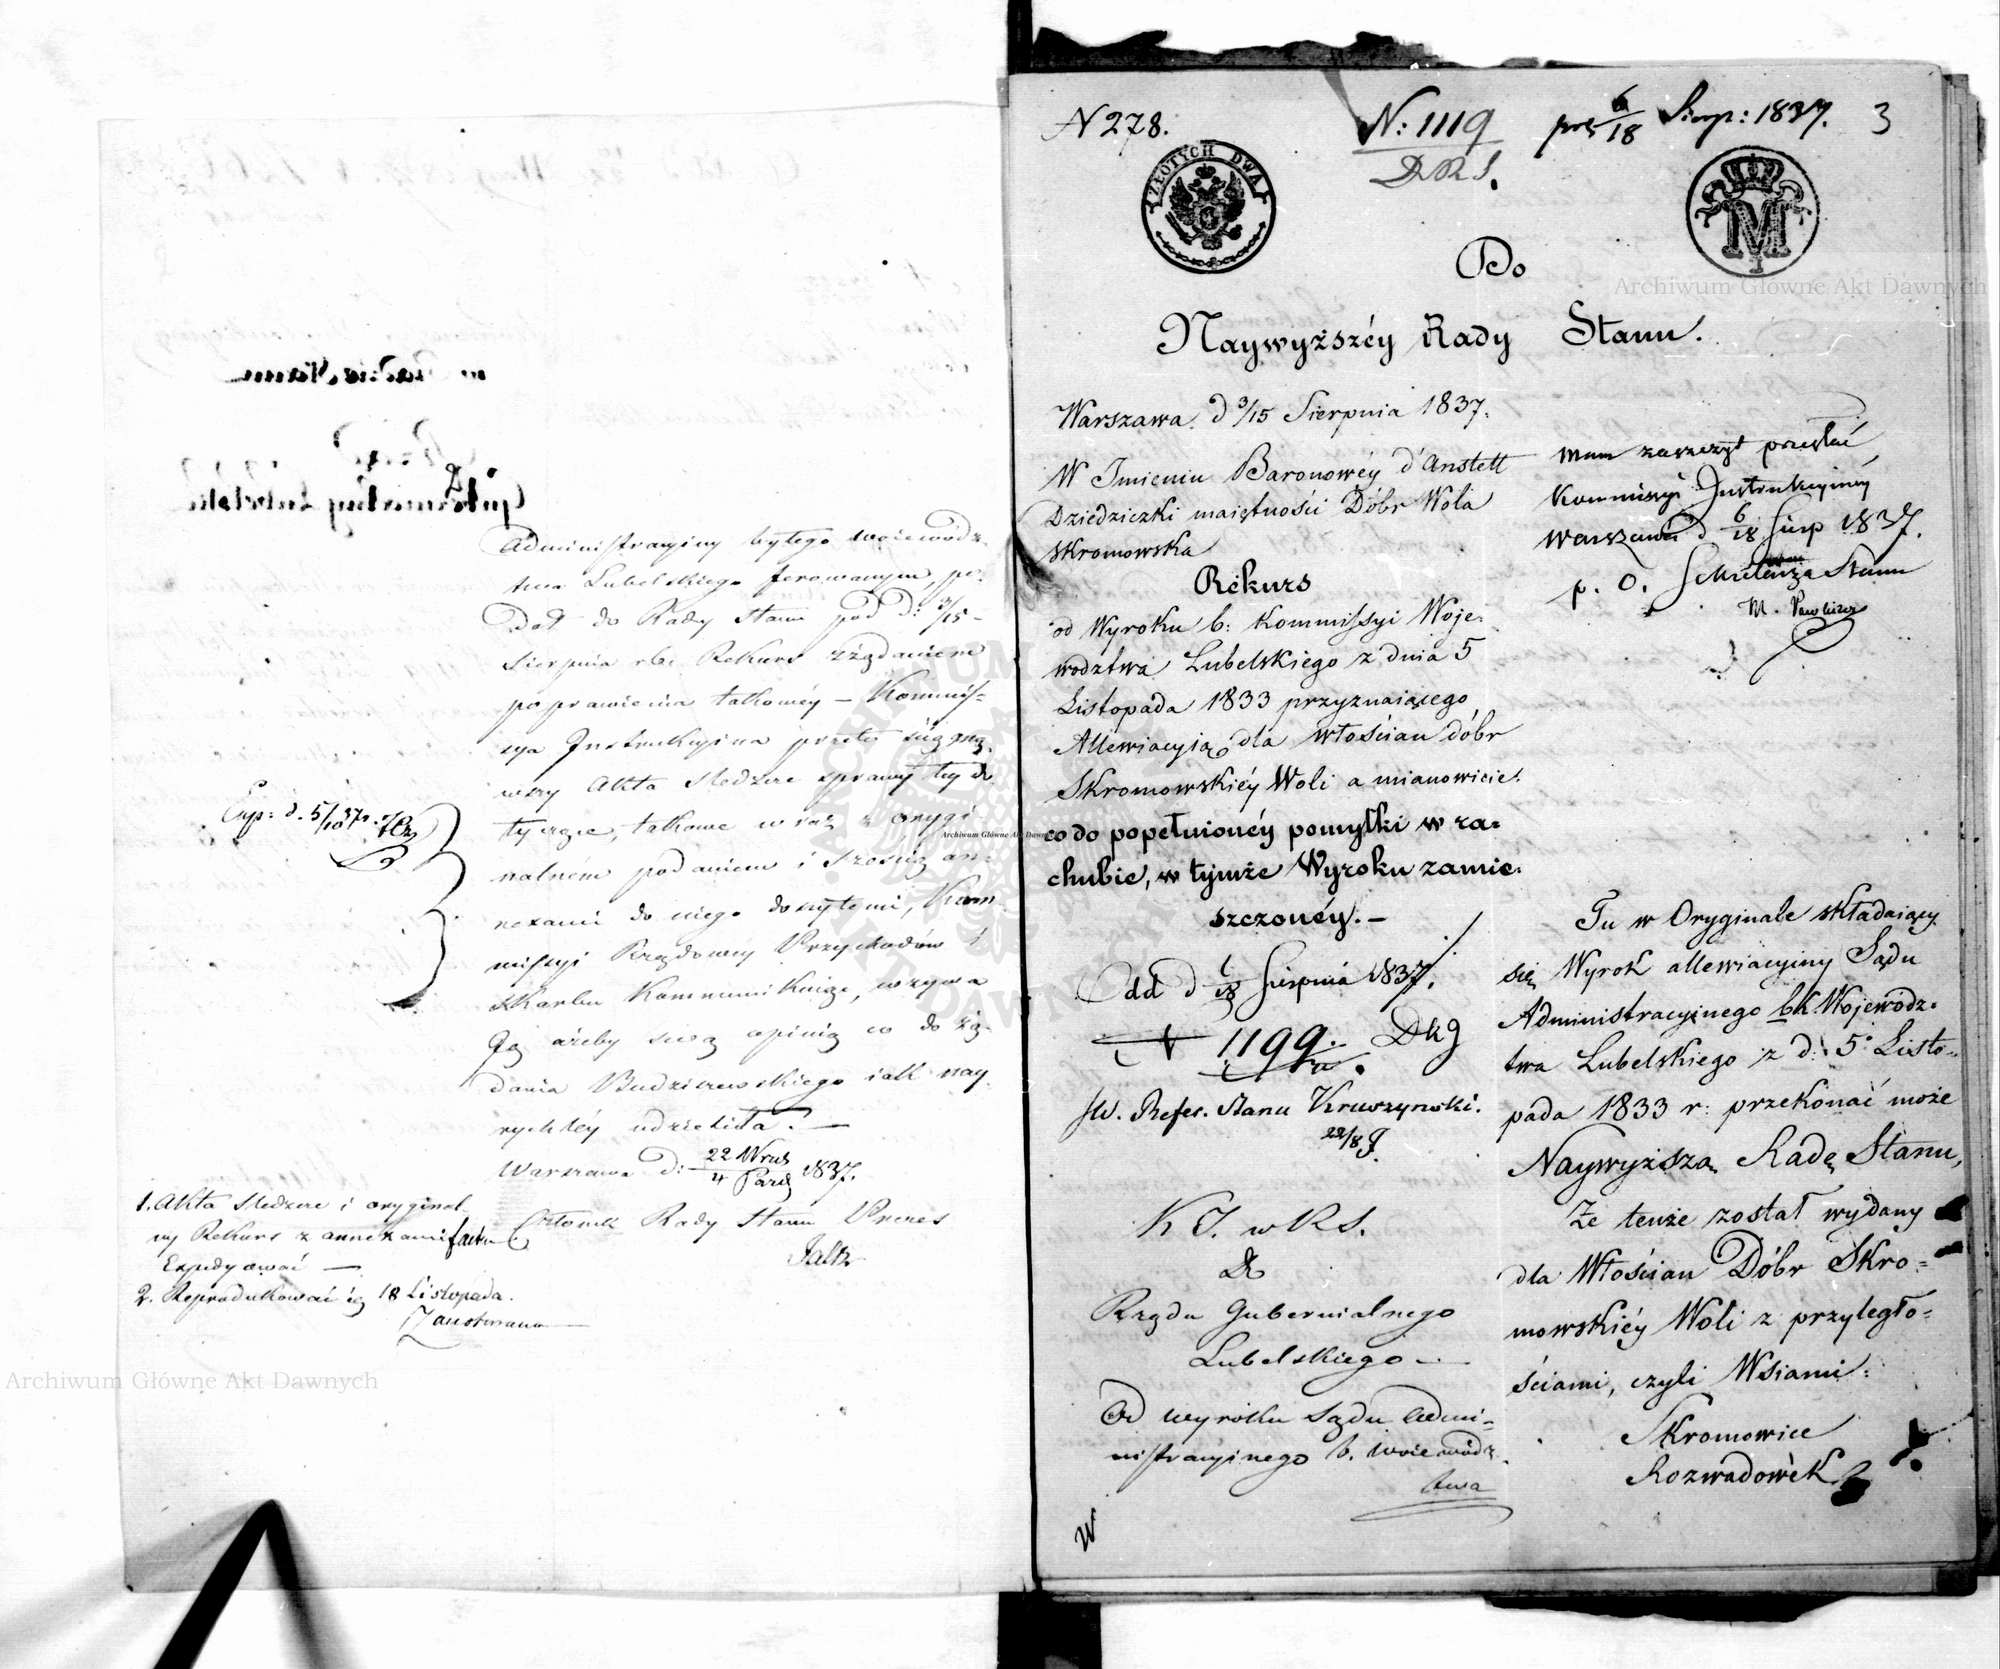 Administracyiny byłego woiewódz-
twa Lubelskiego ferowanym, po-
dał do Rady Stanu pod d: 3/15
Sierpnia rb: Rekurs z żądaniem
poprawienia takowéy – Kommis-
sya Instrukcyina
wszy Akta śledcze sprawy téy do-
tyczące, takowe wraz z orygi-
nalném podaniem i sześcią an-
nexami do niego dołączonemi, Kom-
missyi Rządowéy Przychodów i
Skarbu Kommunikuiąc, wzywa
Ją ażeby swą opinią co do żą-
dania Budziszewskiego iak nay-
rychléy udzieliła. –
Warszawa d: 22 Wrześ / 4 Paźdz 1837.
Członek Rady Stanu Prezes
Exp: d. 5/10 37 r.
1. Akta śledcze i oryginal-
ny Rekurs z annexami
Expedyować –
2. Reprodukować 18 Listopada.
N 278.
N: 1119
DRS.
prz 6/18 Sierp: 1837.
3
ZŁOTYCH DWA
M
Do
Naywyższéy Rady Stanu.
Warszawa d 3/15 Sierpnia 1837.
W Imieniu Baronowéy d'Anstett
Dziedziczki maiętności Dóbr Wola
Skromowska
Rekurs
od Wyroku b: Kommissyi Woje-
wodztwa Lubelskiego z dnia 5
Listopada 1833 przyznaiącego
Allewiacyią dla włościan dóbr
Skromowskiéy Woli a mianowicie:
co do popełnionéy pomyłki w ra-
chubie, w tymże Wyroku zamie-
szczonéy. –
Odd d 6/18 Sierpnia 1837.
N 1199.
JW. Refer. Stanu Kruszyński.
22/8
K I. w R S.
Do
Rządu Gubernialnego
Lubelskiego –
Od wyroku Sądu Admi-
nistracyinego b. woiewódz-
twa
Mam zaszczyt przesłać
Kommissyi Instrukcyinéy
Warszawa d 6/18 Sierp 1837.
p. o. Sekretarza Stanu
Tu w Oryginale składaiący
się Wyrok allewiacyiny Sądu
Administracyinego b. K. Wojewódz-
twa Lubelskiego z d: 5 Listo-
pada 1833 r: przekonać może
Naywyższą Radę Stanu,
Że tenże został wydany
dla Włościan Dóbr Skro-
mowskiéy Woli z przyległo-
ściami, czyli Wsiami:
Skromowice
Rozwadówek
Archiwum Główne Akt Dawnych
Archiwum Główne Akt Dawnych
Archiwum Główne Akt Dawnych